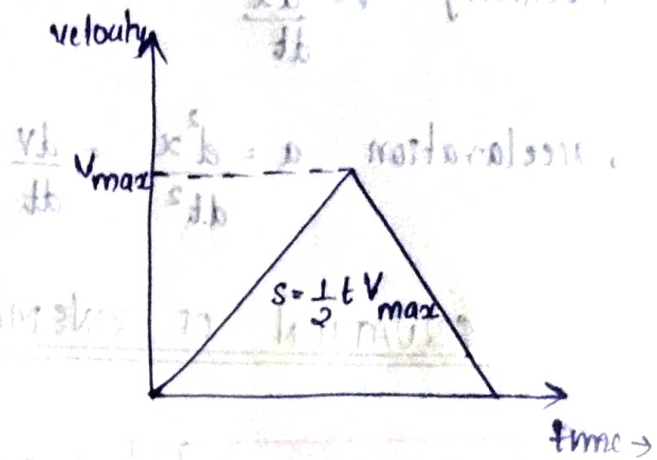 velouty
Vmax
s = 1/2 t Vmax
time →